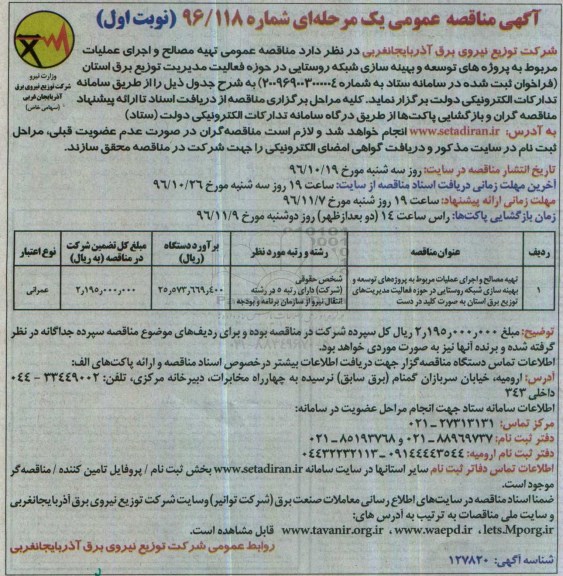 آگهی مناقصه عمومی یک مرحله‌ای شماره ۹۶/۱۱۸ (نوبت اول)
وزارت نیرو
شرکت توزیع نیروی برق
آذربایجان غربی
(سهامی خاص)
شرکت توزیع نیروی برق آذربایجانغربی در نظر دارد مناقصه عمومی تهیه مصالح و اجرای عملیات
مربوط به پروژه های توسعه و بهینه سازی شبکه روستایی در حوزه فعالیت مدیریت توزیع برق استان
(فراخوان ثبت شده در سامانه ستاد به شماره ۲۰۰۹۶۹۰۰۳۰۰۰۰۰۴) به شرح جدول ذیل را از طریق سامانه
تدارکات الکترونیکی دولت برگزار نماید. کلیه مراحل برگزاری مناقصه از دریافت اسناد تا ارائه پیشنهاد
مناقصه گران و بازگشایی پاکت‌ها از طریق درگاه سامانه تدارکات الکترونیکی دولت (ستاد)
به آدرس: www.setadiran.ir انجام خواهد شد و لازم است مناقصه‌گران در صورت عدم عضویت قبلی، مراحل
ثبت نام در سایت مذکور و دریافت گواهی امضای الکترونیکی را جهت شرکت در مناقصه محقق سازند.
تاریخ انتشار مناقصه در سایت: روز سه شنبه مورخ ۹۶/۱۰/۱۹
آخرین مهلت زمانی دریافت اسناد مناقصه از سایت: ساعت ۱۹ روز سه شنبه مورخ ۹۶/۱۰/۲۶
مهلت زمانی ارائه پیشنهاد: ساعت ۱۹ روز شنبه مورخ ۹۶/۱۱/۷
زمان بازگشایی پاکت‌ها: راس ساعت ۱۴ (دو بعدازظهر) روز دوشنبه مورخ ۹۶/۱۱/۹
ردیف عنوان مناقصه رشته و رتبه مورد نظر برآورد دستگاه (ریال) مبلغ کل تضمین شرکت در مناقصه (به ریال) نوع اعتبار
۱ تهیه مصالح و اجرای عملیات مربوط به پروژه‌های توسعه و بهینه سازی شبکه روستایی در حوزه فعالیت مدیریت‌های توزیع برق استان به صورت کلید در دست شخص حقوقی (شرکت) دارای رتبه ۵ در رشته انتقال نیرو از سازمان برنامه و بودجه ۲۵٫۵۷۳٫۶۶۹٫۴۰۰ ۲٫۱۹۵٫۰۰۰٫۰۰۰ عمرانی
توضیح: مبلغ ۲٫۱۹۵٫۰۰۰٫۰۰۰ ریال کل سپرده شرکت در مناقصه بوده و برای ردیف‌های موضوع مناقصه سپرده جداگانه در نظر
گرفته شده و برنده آنها نیز به صورت موردی خواهد بود.
اطلاعات تماس دستگاه مناقصه‌گزار جهت دریافت اطلاعات بیشتر درخصوص اسناد مناقصه و ارائه پاکت‌های الف:
آدرس: ارومیه، خیابان سربازان گمنام (برق سابق) نرسیده به چهارراه مخابرات، دبیرخانه مرکزی، تلفن: ۳۳۴۴۹۰۰۲ - ۰۴۴
داخلی ۳۴۳
اطلاعات سامانه ستاد جهت انجام مراحل عضویت در سامانه:
مرکز تماس: ۲۷۳۱۳۱۳۱-۰۲۱
دفتر ثبت نام: ۸۸۹۶۹۷۳۷-۰۲۱ و ۸۵۱۹۳۷۶۸-۰۲۱
دفتر ثبت نام ارومیه: ۰۹۱۴۴۴۴۳۵۴۴-۰۴۴۳۲۲۳۲۱۱۳
اطلاعات تماس دفاتر ثبت نام سایر استانها در سایت سامانه www.setadiran.ir بخش ثبت نام / پروفایل تامین کننده / مناقصه‌گر
موجود است.
ضمنا اسناد مناقصه در سایت‌های اطلاع رسانی معاملات صنعت برق (شرکت توانیر) وسایت شرکت توزیع نیروی برق آذربایجانغربی
و سایت ملی مناقصات به ترتیب به آدرس های:
www.tavanir.org.ir ، www.waepd.ir ، Iets.Mporg.ir قابل مشاهده است.
روابط عمومی شرکت توزیع نیروی برق آذربایجانغربی
شناسه آگهی: ۱۲۷۸۲۰